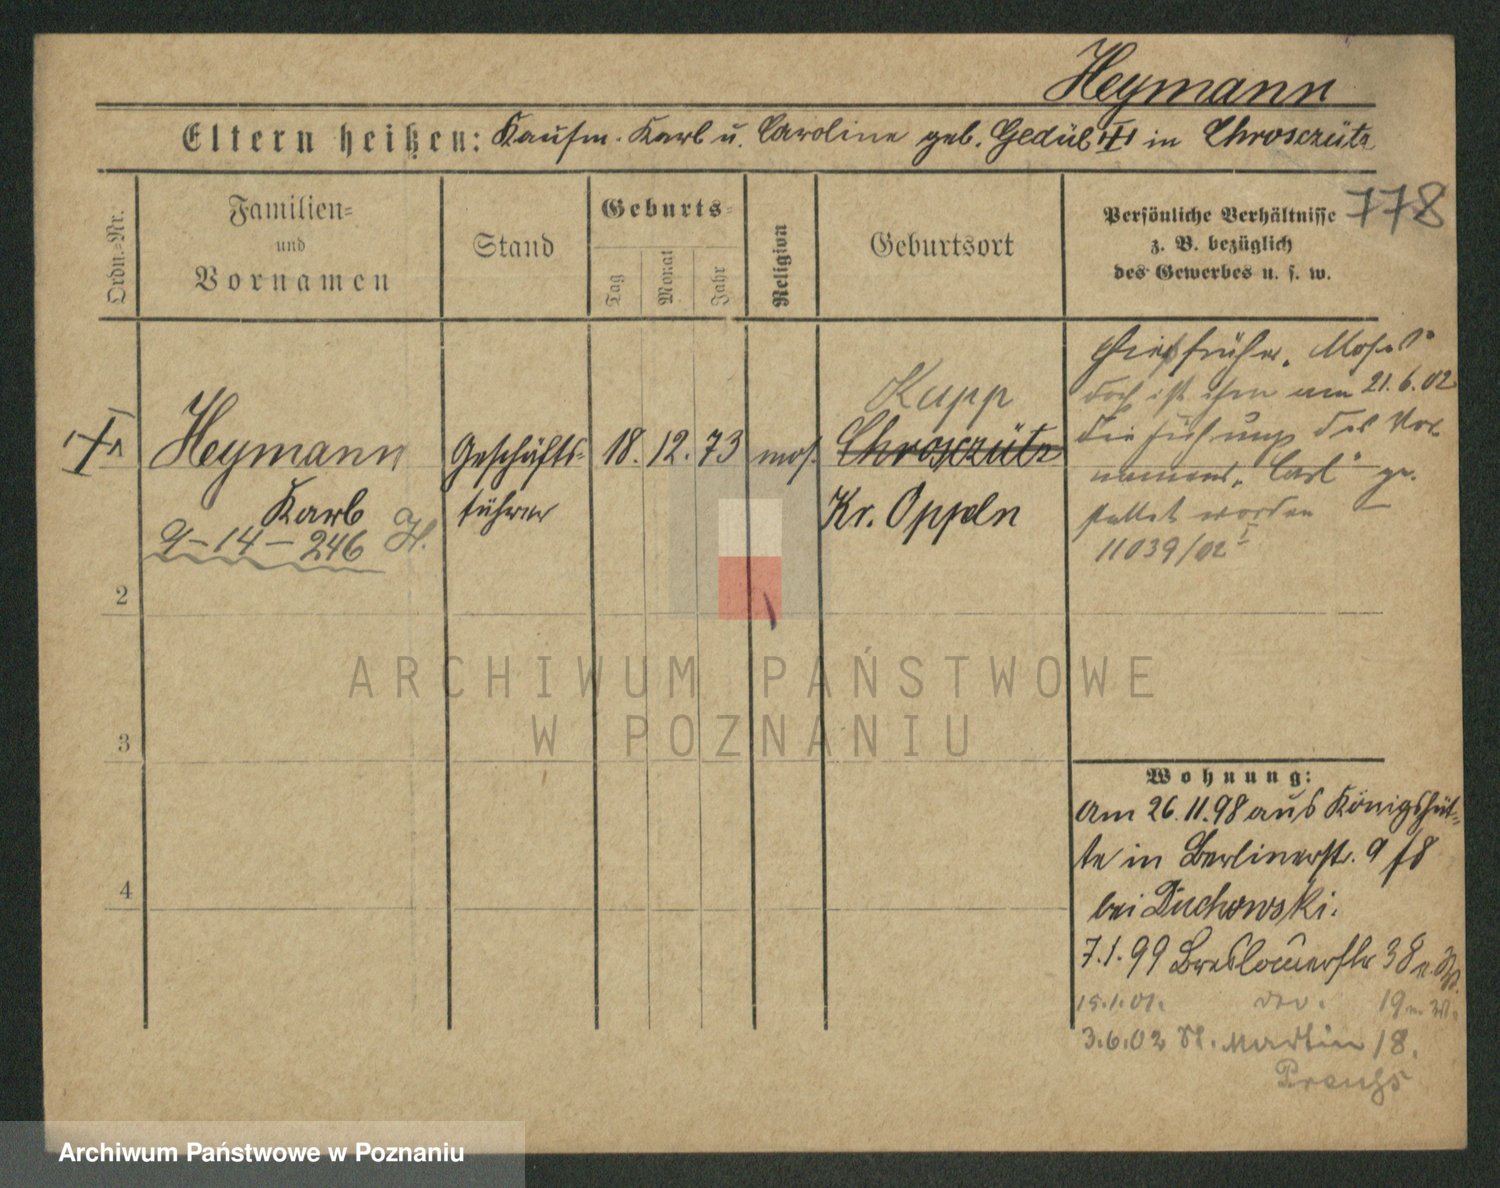 Heymann
Eltern heißen: Kaufm. Karl u. Caroline geb. Gedül in Chrosczütz
778
Ordn.-Nr.
Familien-
und
Vornamen
Stand
Geburts-
Tag
Monat
Jahr
Religion
Geburtsort
Persönliche Verhältnisse
z. B. bezüglich
des Gewerbes u. s. w.
Heymann
Karl
9-14-246 H.
Geschäfts-
führer
18. 12. 73
mos.
Kupp
Chrosczütz
Kr. Oppeln
hieß früher „Moses“
doch ist ihm am 21.6.02
die Führung des Vor
namens „Carl“ ge-
stattet worden
11039/02 I
2
3
4
Wohnung:
Am 26.11.98 aus Königshüt-
te in Berlinerstr. 9 f8
bei Duchowski.
7.1.99 Breslauerstr 38
15.1.01. 19
3.6.02 St. Martin 18.
ARCHIWUM PAŃSTWOWE
W POZNANIU
Archiwum Państwowe w Poznaniu